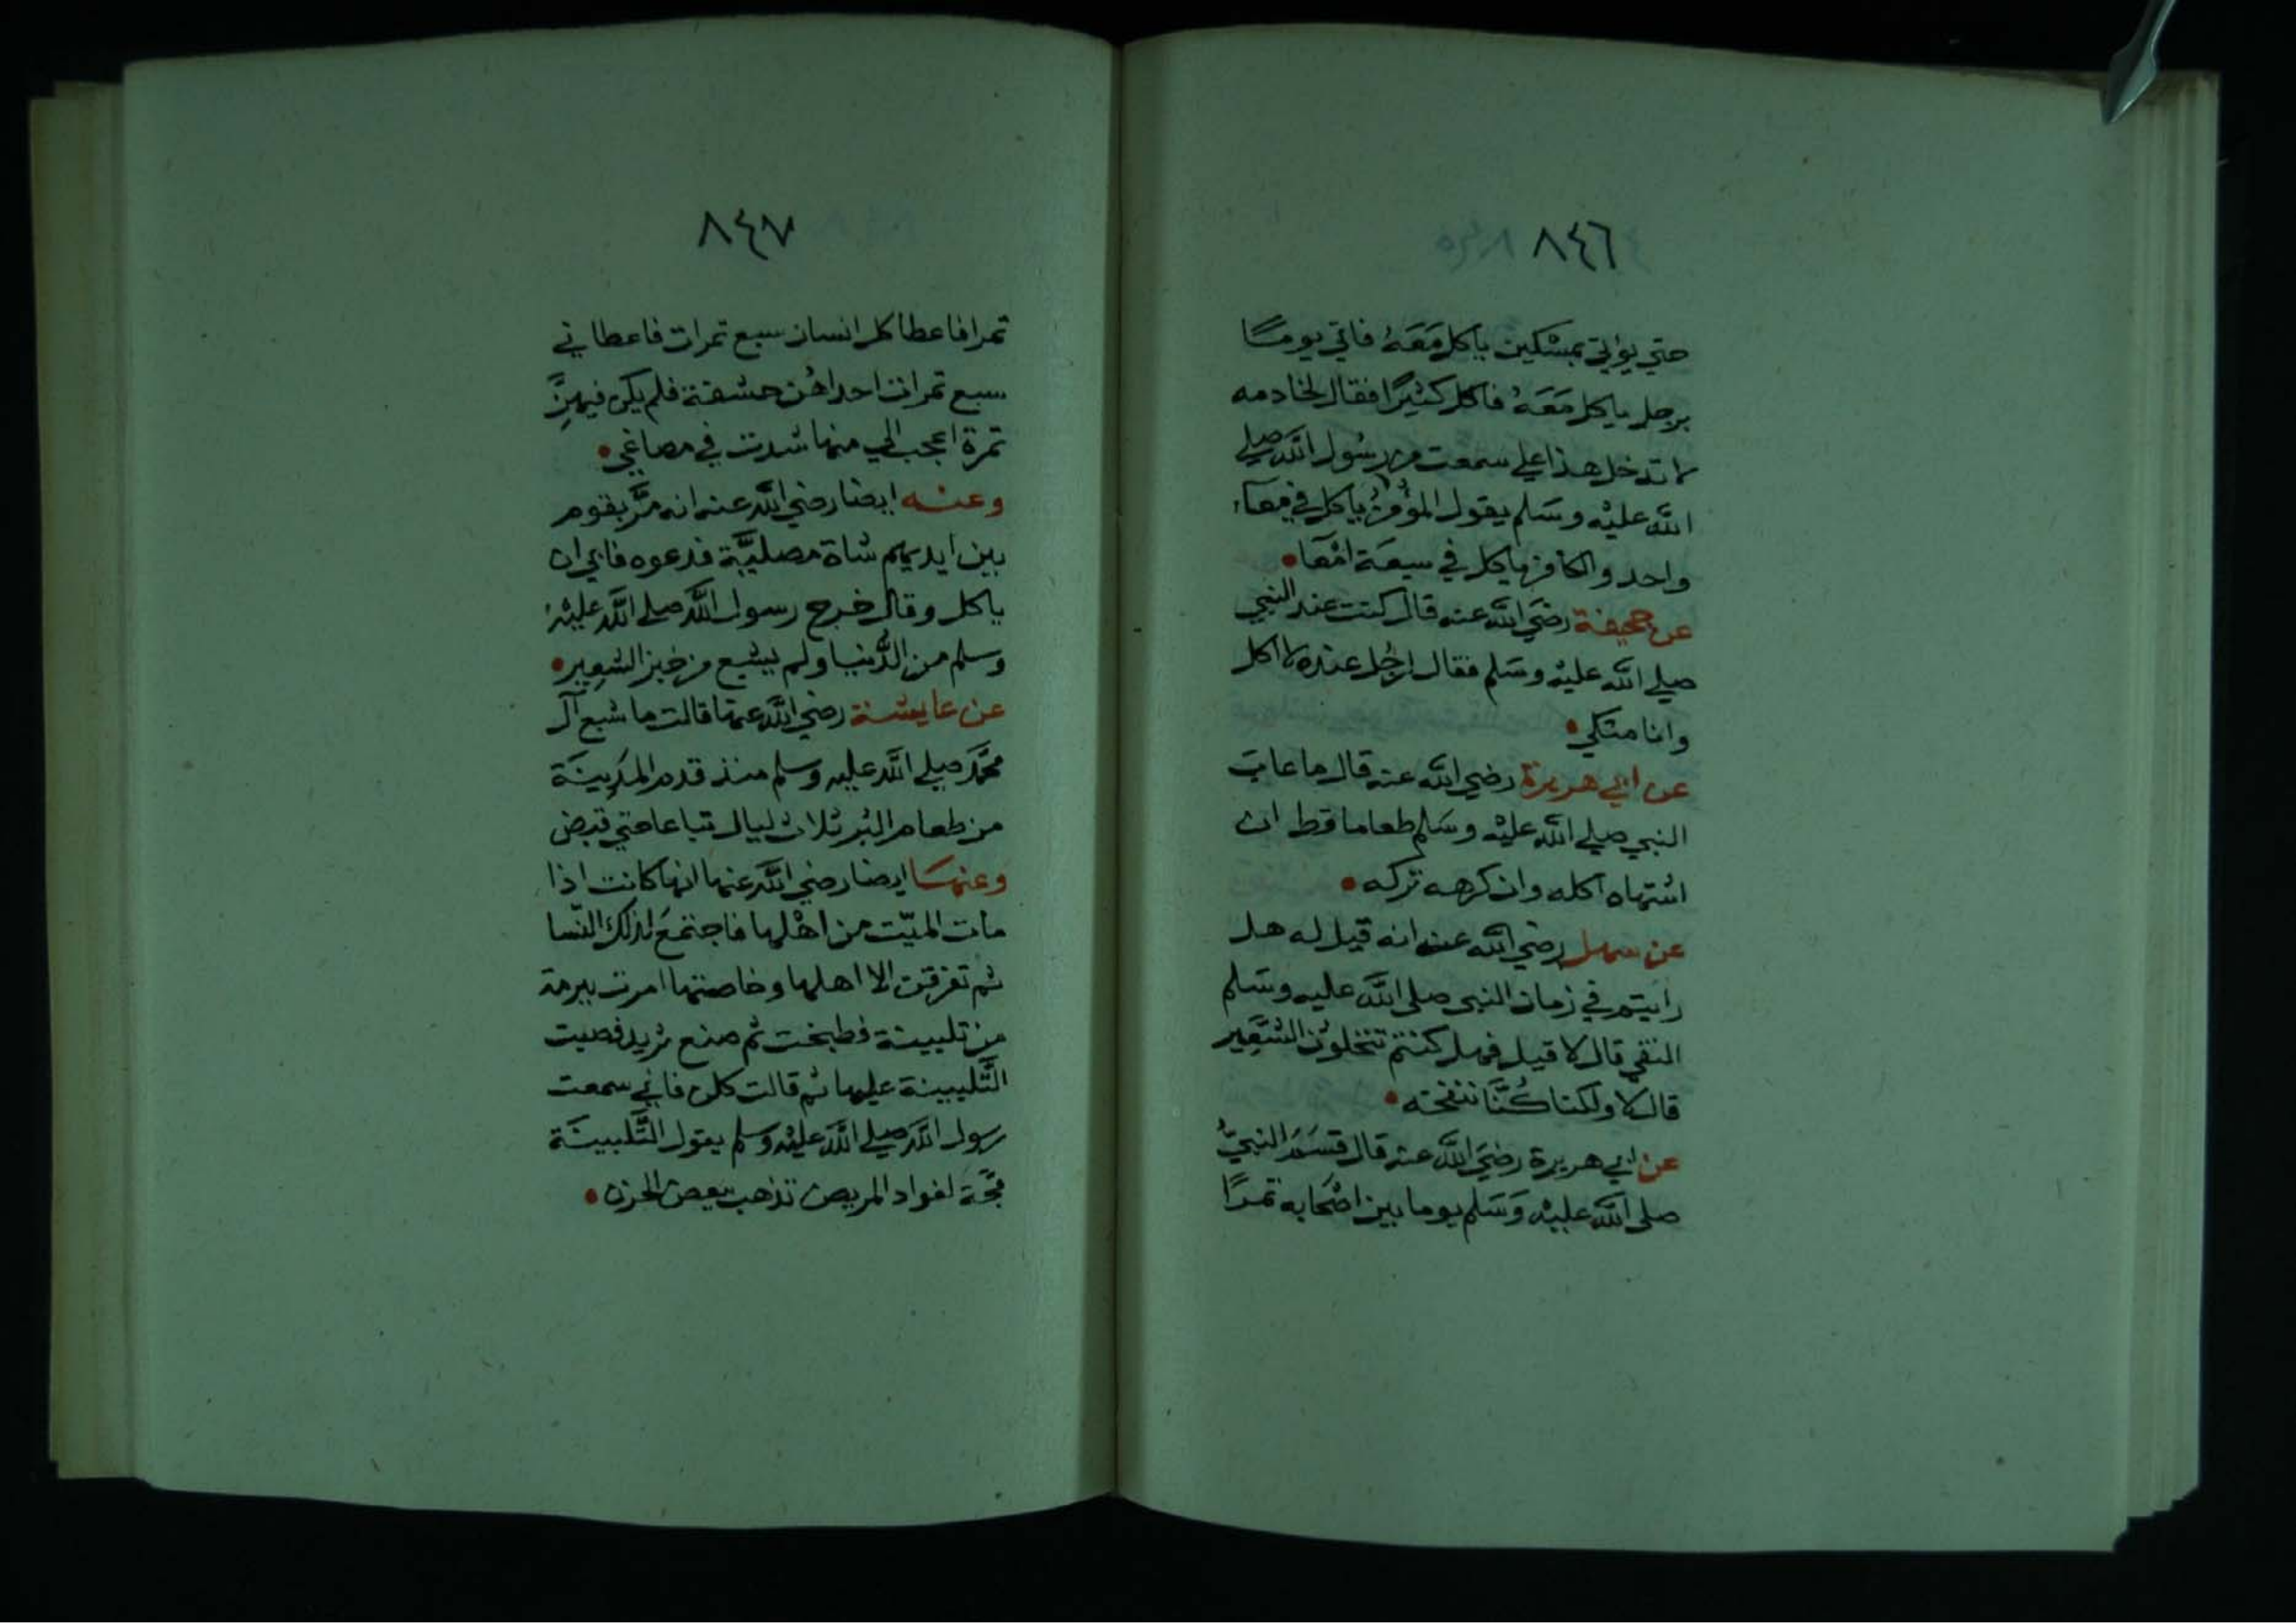 ٨٤٦
حتي يؤتي بمسْكين ياكل مَعَهُ فاتي يومًا
برجل ياكل مَعَهُ فاكل كثيرًا فقال لخادمه
لا تدخل هذا علي سمعت من رسُول اللَّه صلي
اللَّه عليْه وسَلم يقول المؤمنُ ياكل في مِعَآء
واحد والكافر ياكل في سبعَة امْعَا
عن جحيفة رضَي اللَّه عنه قال كنت عند النبي
صلي اللَّه عليْه وسَلم فقال لرجُل عنده لا اكل
وانا متكي
عن ابي هريرة رضي اللَّه عنه قال ما عابَ
النبي صلي اللَّه عليْه وسَلم طعاما قط ان
اشتهاه اكله وان كرهه تركه
عن سهل رضي اللَّه عنه انه قيل له هل
رايتم في زمان النبي صلي اللَّه عليه وسَلم
النقي قال لا قيل فهل كنتم تنخلوُن الشَّعِير
قال لا ولكنا كُنَّا ننفخه
عن ابي هريرة رضَي اللَّه عنه قال قسَمَ النبيُّ
صلي اللَّه عليْه وَسَلم يوما بين اصْحَابه تمرًا
٨٤٧
تمرا فاعطا كل انسان سبع تمرات فاعطاني
سبع تمرات احداهُن حشفة فلم يكن فيهِنَّ
تمرة اعجب الي منها شدت في مصاغي
وعنه ايضا رضي اللَّه عنه انه مَرَّ بقوم
بين ايديهم شاة مصليَّة فدعوه فابي ان
ياكل وقال خرج رسول اللَّه صلي اللَّه عليْه
وسلم من الدُّنيا ولم يشبع من خبز الشعِير
عن عايشة رضي اللَّه عنها قالت ما شبع آل
محمَّد صلي اللَّه عليه وسلم منذ قدم المَدِينَة
من طعام البُر ثلاث ليال تباعا حتي قبض
وعنهَا ايضا رضي اللَّه عنها انها كانت اذا
مات الميّت من اهْلها فاجتمعَ لذلك النّسا
ثم تفرقن الا اهلها وخاصتها امرت ببرمة
من تلبينة فطبخت ثم صنع ثريد فصبت
التَّلبينة عليها ثم قالت كلن فاني سمعت
رسول اللَّه صلي اللَّه عليْه وسلم يقول التَّلبينَة
مجَّة لفواد المريض تذهب ببعض الحزن